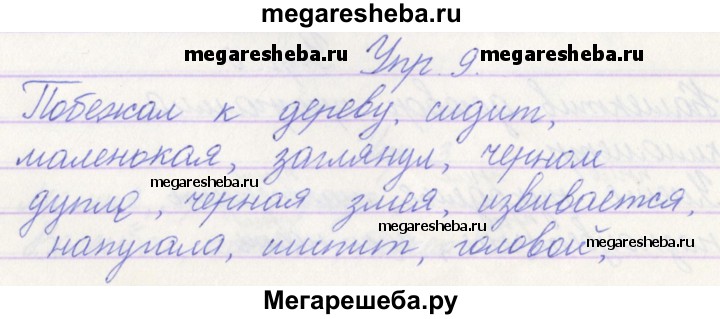 megaresheba.ru
megaresheba.ru Упр. 9. megaresheba.ru
Побежал к дереву, сидит,
маленокая, заглянул, черном
megaresheba.ru
дупле, черная змея, извивается,
megaresheba.ru
напугала, шипит, головой,
megaresheba.ru
Мегарешеба.ру